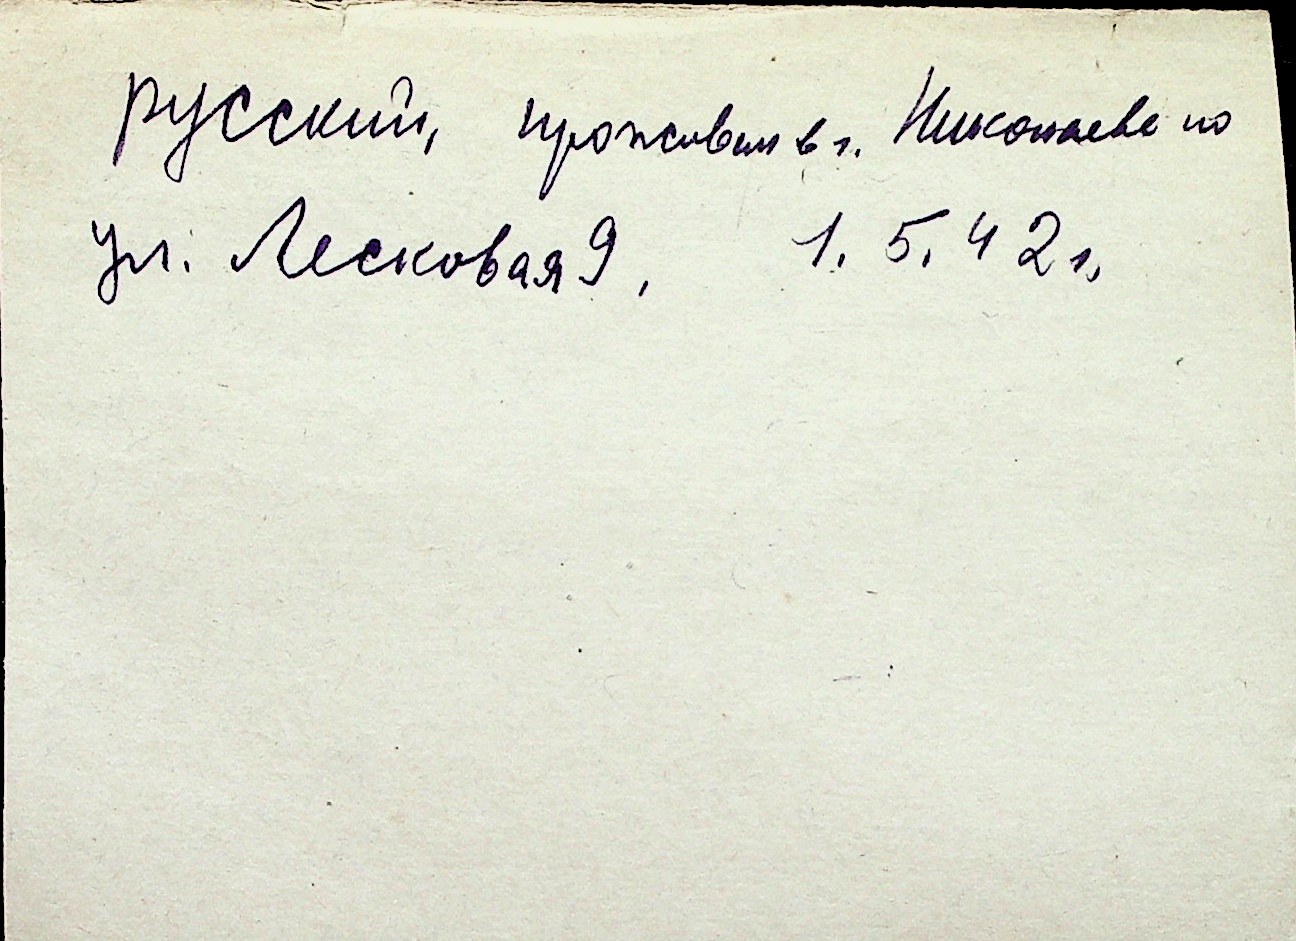 русский, проживал в г. Николаеве по
ул. Лесковая 9, 1.5.42 г.